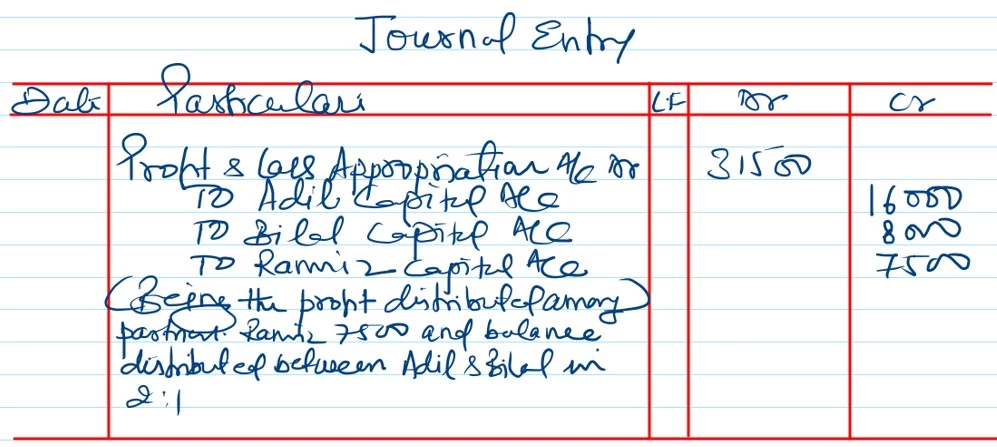 Journal Entry
Date Particulars LF Dr Cr
Profit & Loss Appropriation A/c Dr 31500
To Adil Capital A/c 16000
To Bilal Capital A/c 8000
To Ramiz Capital A/c 7500
(Being the profit distributed among)
partners. Ramiz 7500 and balance
distributed between Adil & Bilal in
2:1